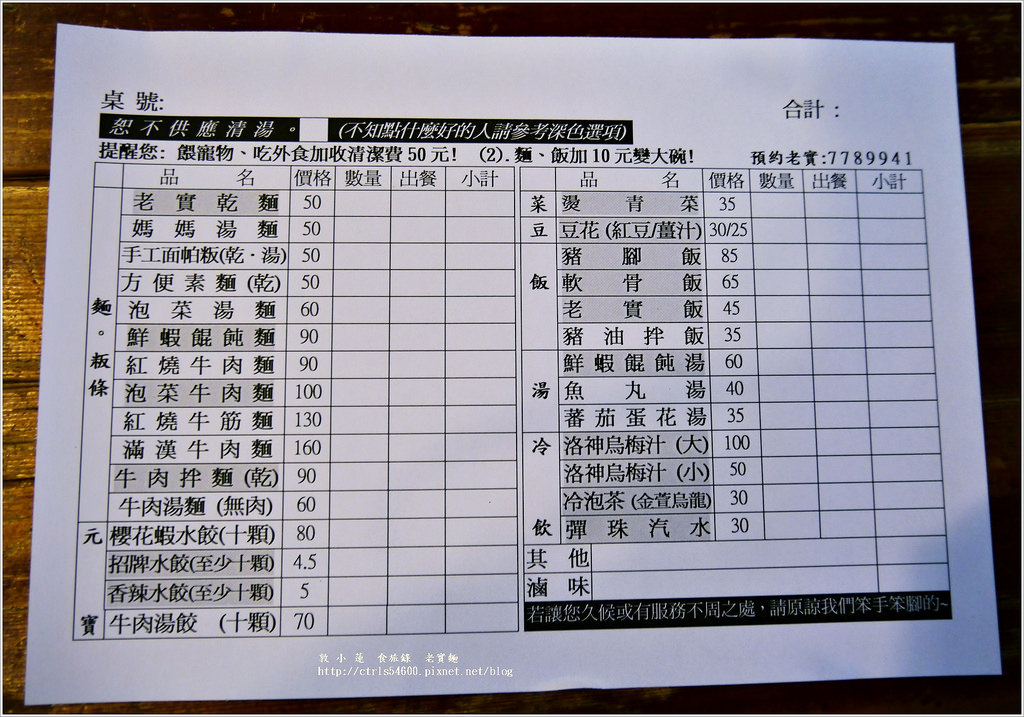 桌 號:
合計：
恕不供應清湯。
(不知點什麼好的人請參考深色選項)
提醒您: 餵寵物、吃外食加收清潔費 50 元! (2). 麵、飯加 10 元變大碗!
預約老實:7789941
品 名 價格 數量 出餐 小計
麵。粄條
老實乾麵 50
媽媽湯麵 50
手工面帕粄(乾．湯) 50
方便素麵 (乾) 50
泡菜湯麵 60
鮮蝦餛飩麵 90
紅燒牛肉麵 90
泡菜牛肉麵 100
紅燒牛筋麵 130
滿漢牛肉麵 160
牛肉拌麵 (乾) 90
牛肉湯麵 (無肉) 60
元寶
櫻花蝦水餃(十顆) 80
招牌水餃(至少十顆) 4.5
香辣水餃(至少十顆) 5
牛肉湯餃 (十顆) 70
品 名 價格 數量 出餐 小計
菜 燙青菜 35
豆 豆花 (紅豆/薑汁) 30/25
飯
豬腳飯 85
軟骨飯 65
老實飯 45
豬油拌飯 35
湯
鮮蝦餛飩湯 60
魚丸湯 40
蕃茄蛋花湯 35
冷飲
洛神烏梅汁 (大) 100
洛神烏梅汁 (小) 50
冷泡茶 (金萱烏龍) 30
彈珠汽水 30
其他
滷味
若讓您久候或有服務不周之處，請原諒我們笨手笨腳的~
敦小蓮 食旅錄 老實麵
http://ctrls54600.pixnet.net/blog